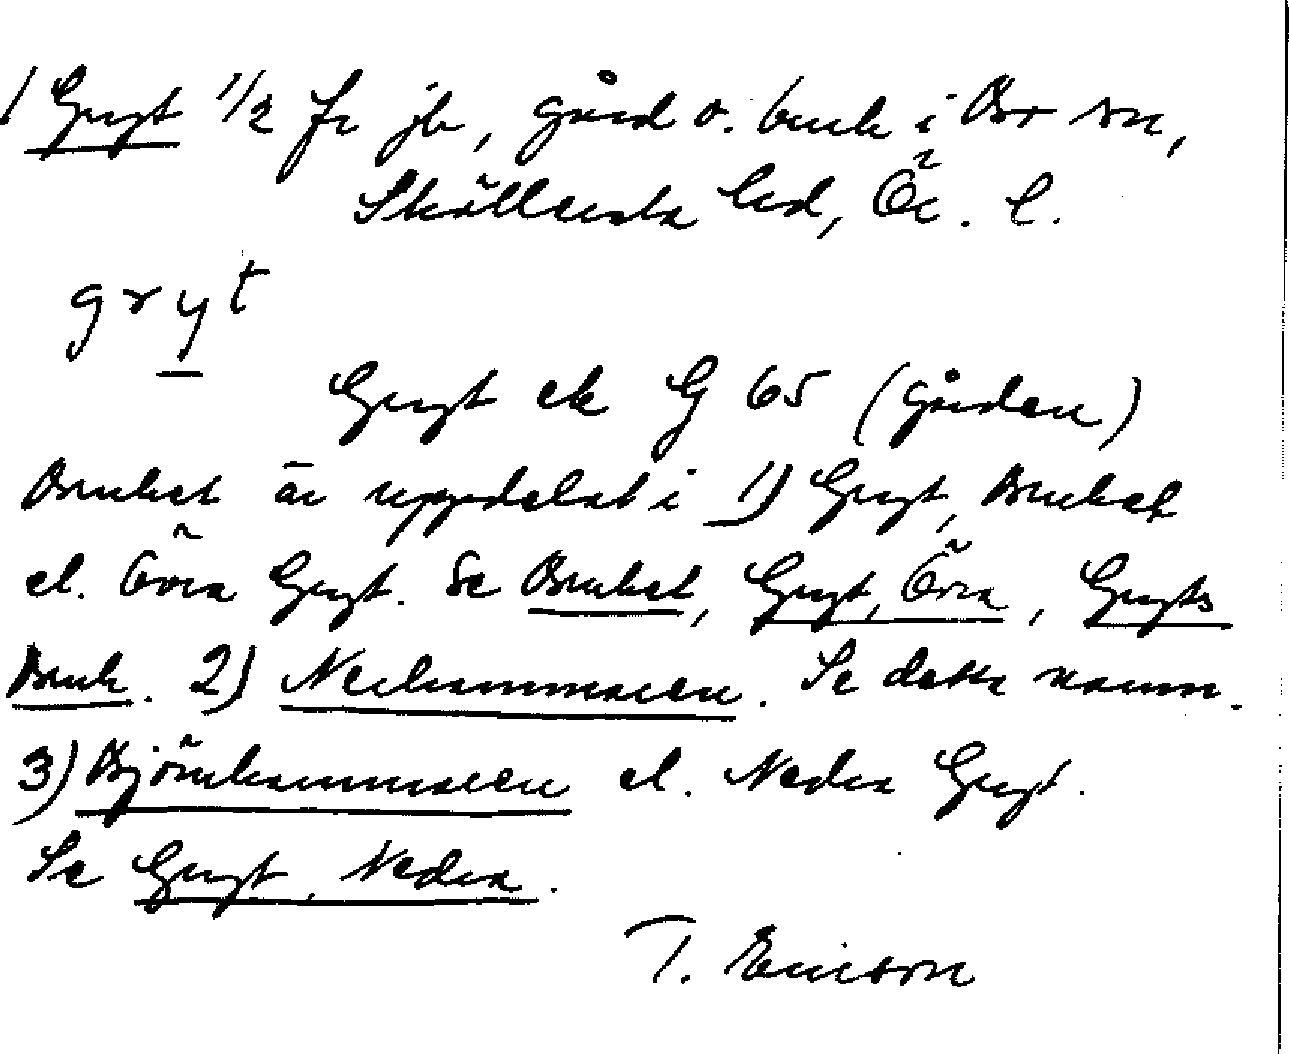 1 Gryt 1/2 fr jb, gård o. bruk i Bo sn,
Sköllersta hd, Ör. l.
gryt
Gryt ek G 65 (gården)
Bruket är uppdelat i 1) Gryt, Bruket
el. Övra Gryt. Se Bruket, Gryt, Övra, Gryts
Bruk. 2) Nerhammaren. Se detta namn.
3) Björnhammaren el. Nedra Gryt.
Se Gryt, Nedra.
T. Ericson